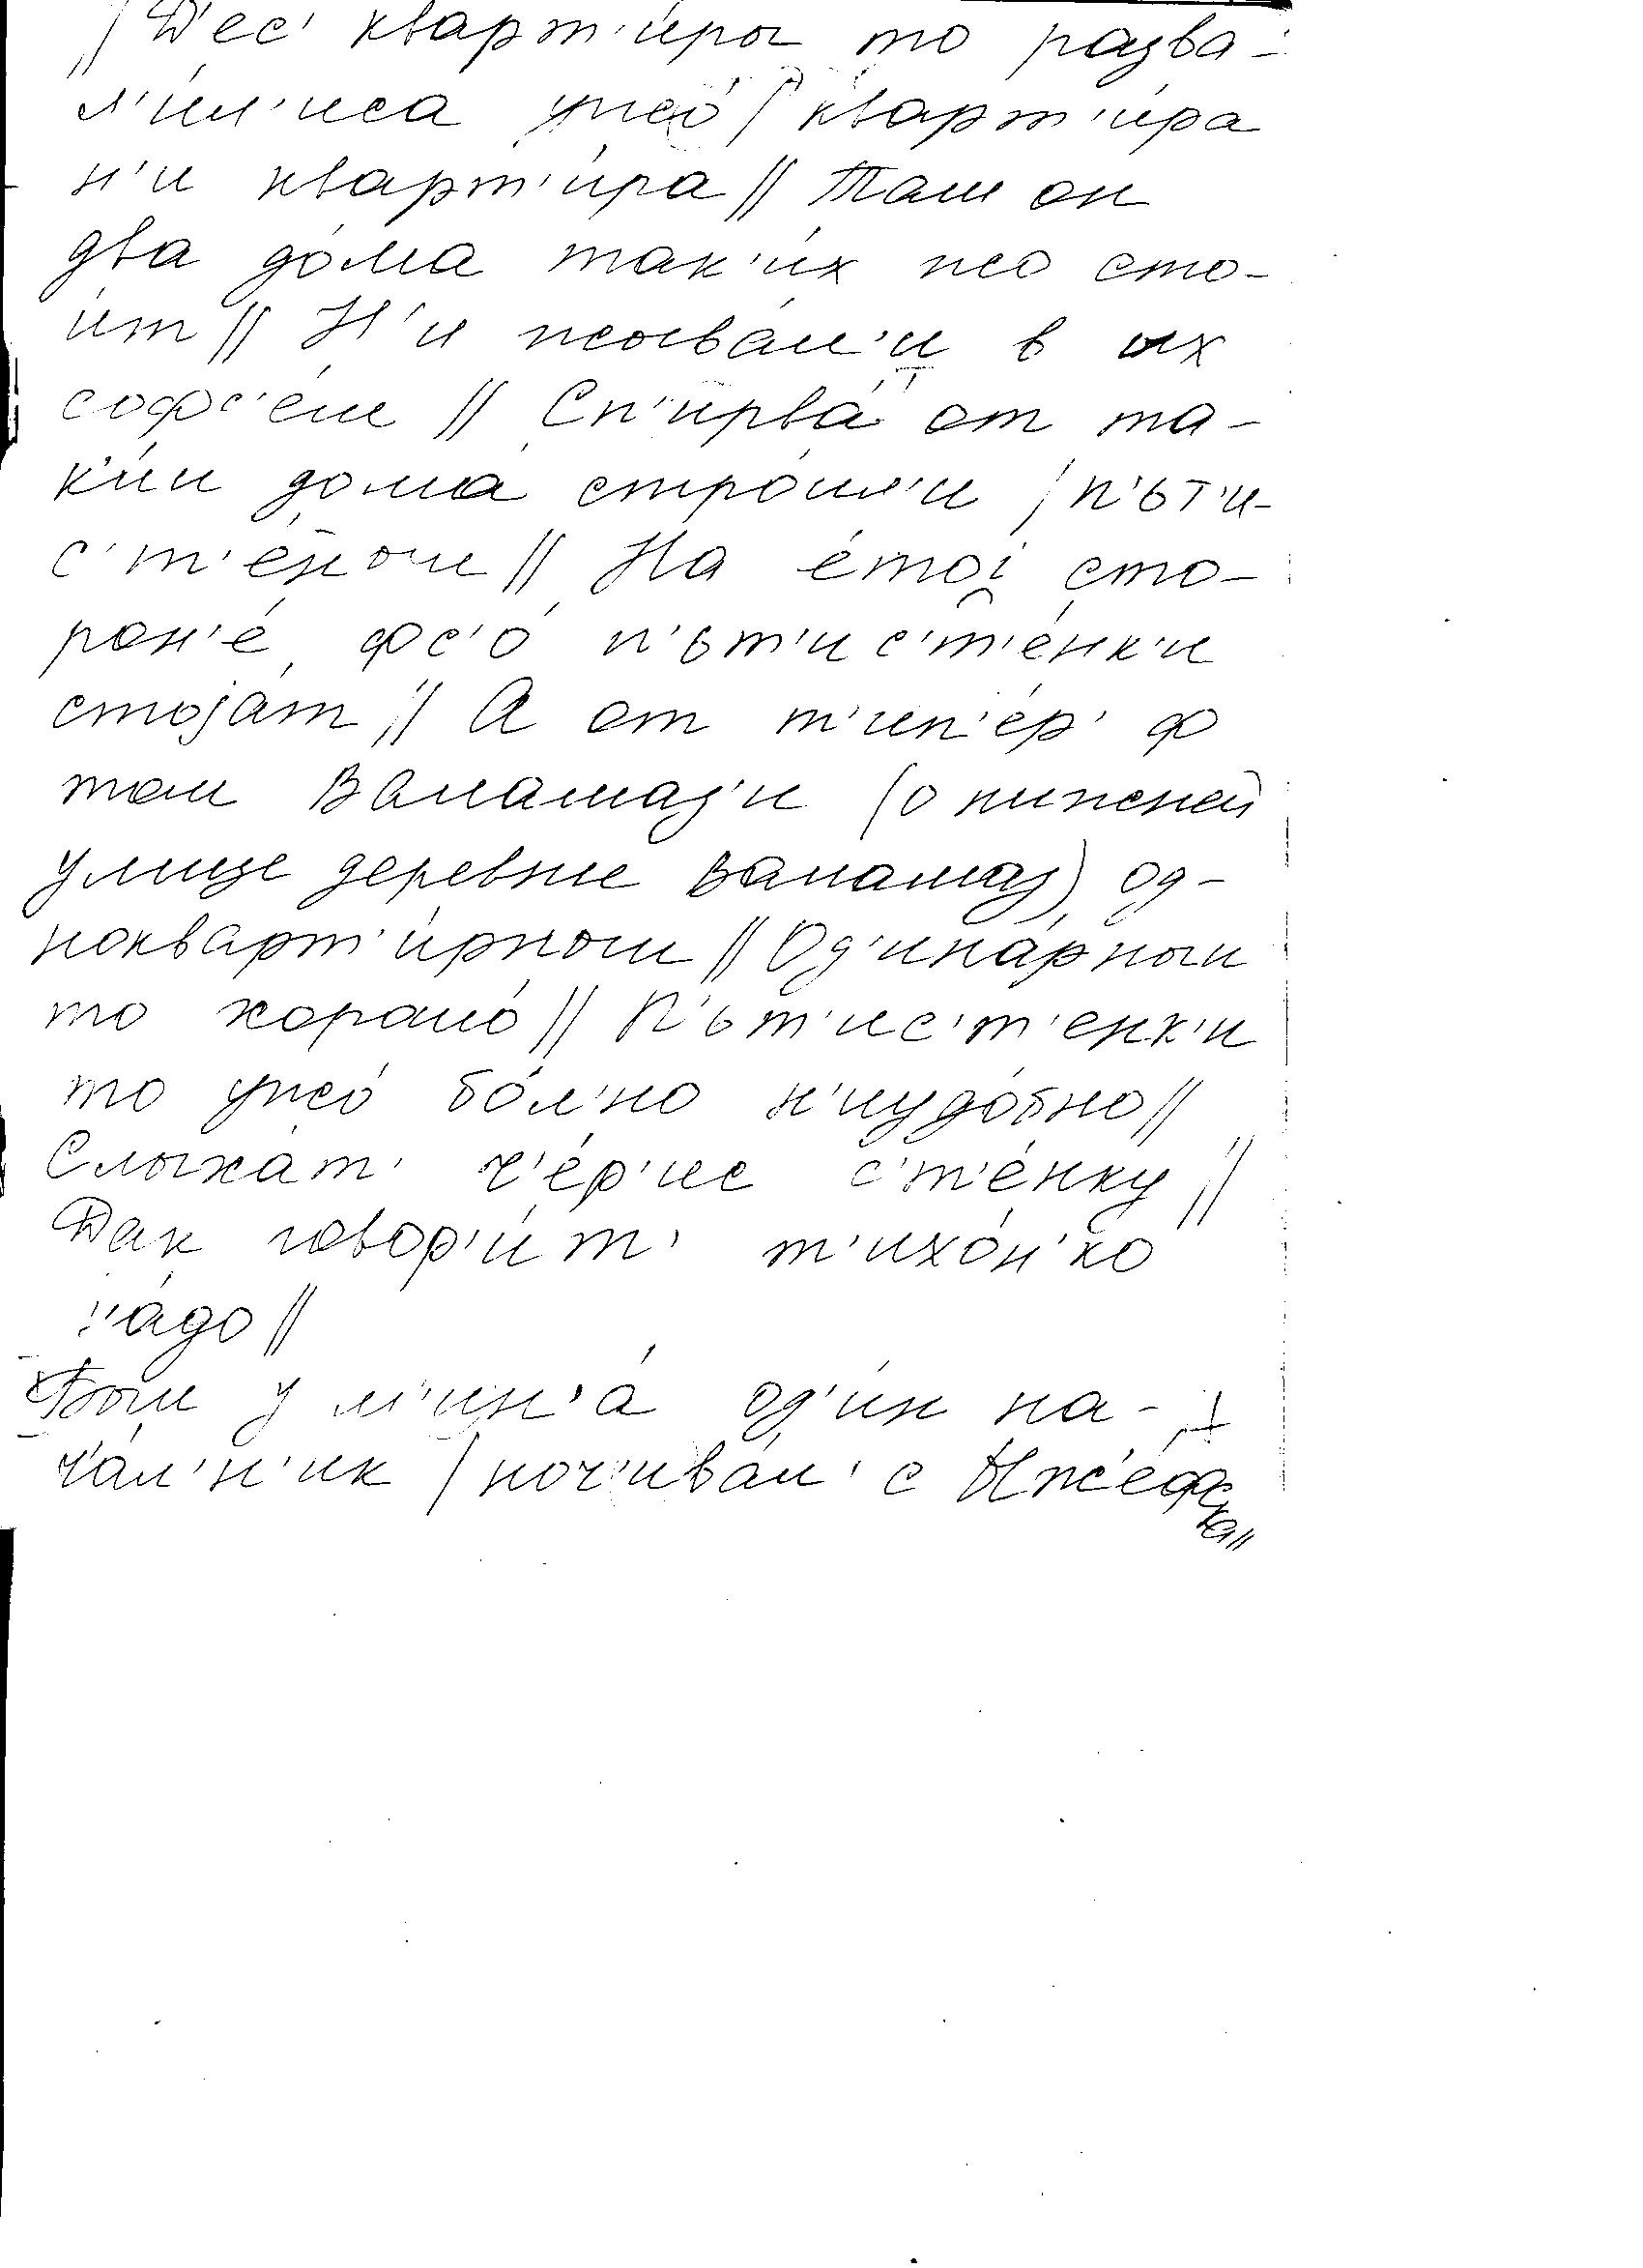 / Д'ес' кварт'и́ры то разва-
л'и́л'иса ужо́ / кварт'и́ра
н'и кварт'и́ра // Там он
два до́ма так'и́х жо сто-
и́т // Н'и жывал'и в их
софс'е́м // Сп'ирва́ от та-
к'и́и дома́ стро́ил'и / п'ьт'и-
с'т'е́ном // На е́тоį сто-
рон'е́ фс'о п'ьт'ис'т'е́нк'и
стоја́т // А от т'ип'е́р' ф
том Ванамаз'и (о нижней
улице деревне Ванамаз), од-
нокварт'и́рном // Од'ина́рныи
то хорошо́ // П'ьт'ис'т'енк'и
то ужо́ бо́л'но н'иудо́бно //
Слыха́т' ч'е́р'ис с'т'е́нку //
Дак говор'и́т' т'ихо́н'ко
на́до //
Был у м'ин'а́ од'и́н на-
ч'а́л'н'ик / ноч'ива́л' с Иже́фска //